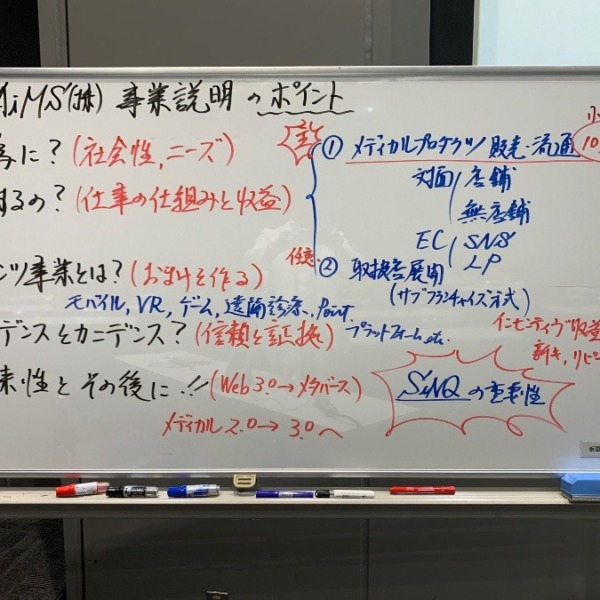 iMS(株) 事業説明のポイント
に?(社会性,ニーズ)
するの?(仕事の仕組みと収益)
① メディカルプロダクツ 販売・流通
対面 店舗
無店舗
EC SNS
LP
任意
② 取扱店展開
(サブフランチャイズ方式)
ンツ事業とは?(おまけを作る)
モバイル, VR, ゲーム, 遠隔診療, Point,
プラットフォーム etc.
デンスとカニデンス?(信頼と証拠)
インセンティブ収益
新キ, リピ
来性とその後に!!(Web3.0→メタバース)
メディカル2.0→3.0へ
SiNQの重要性